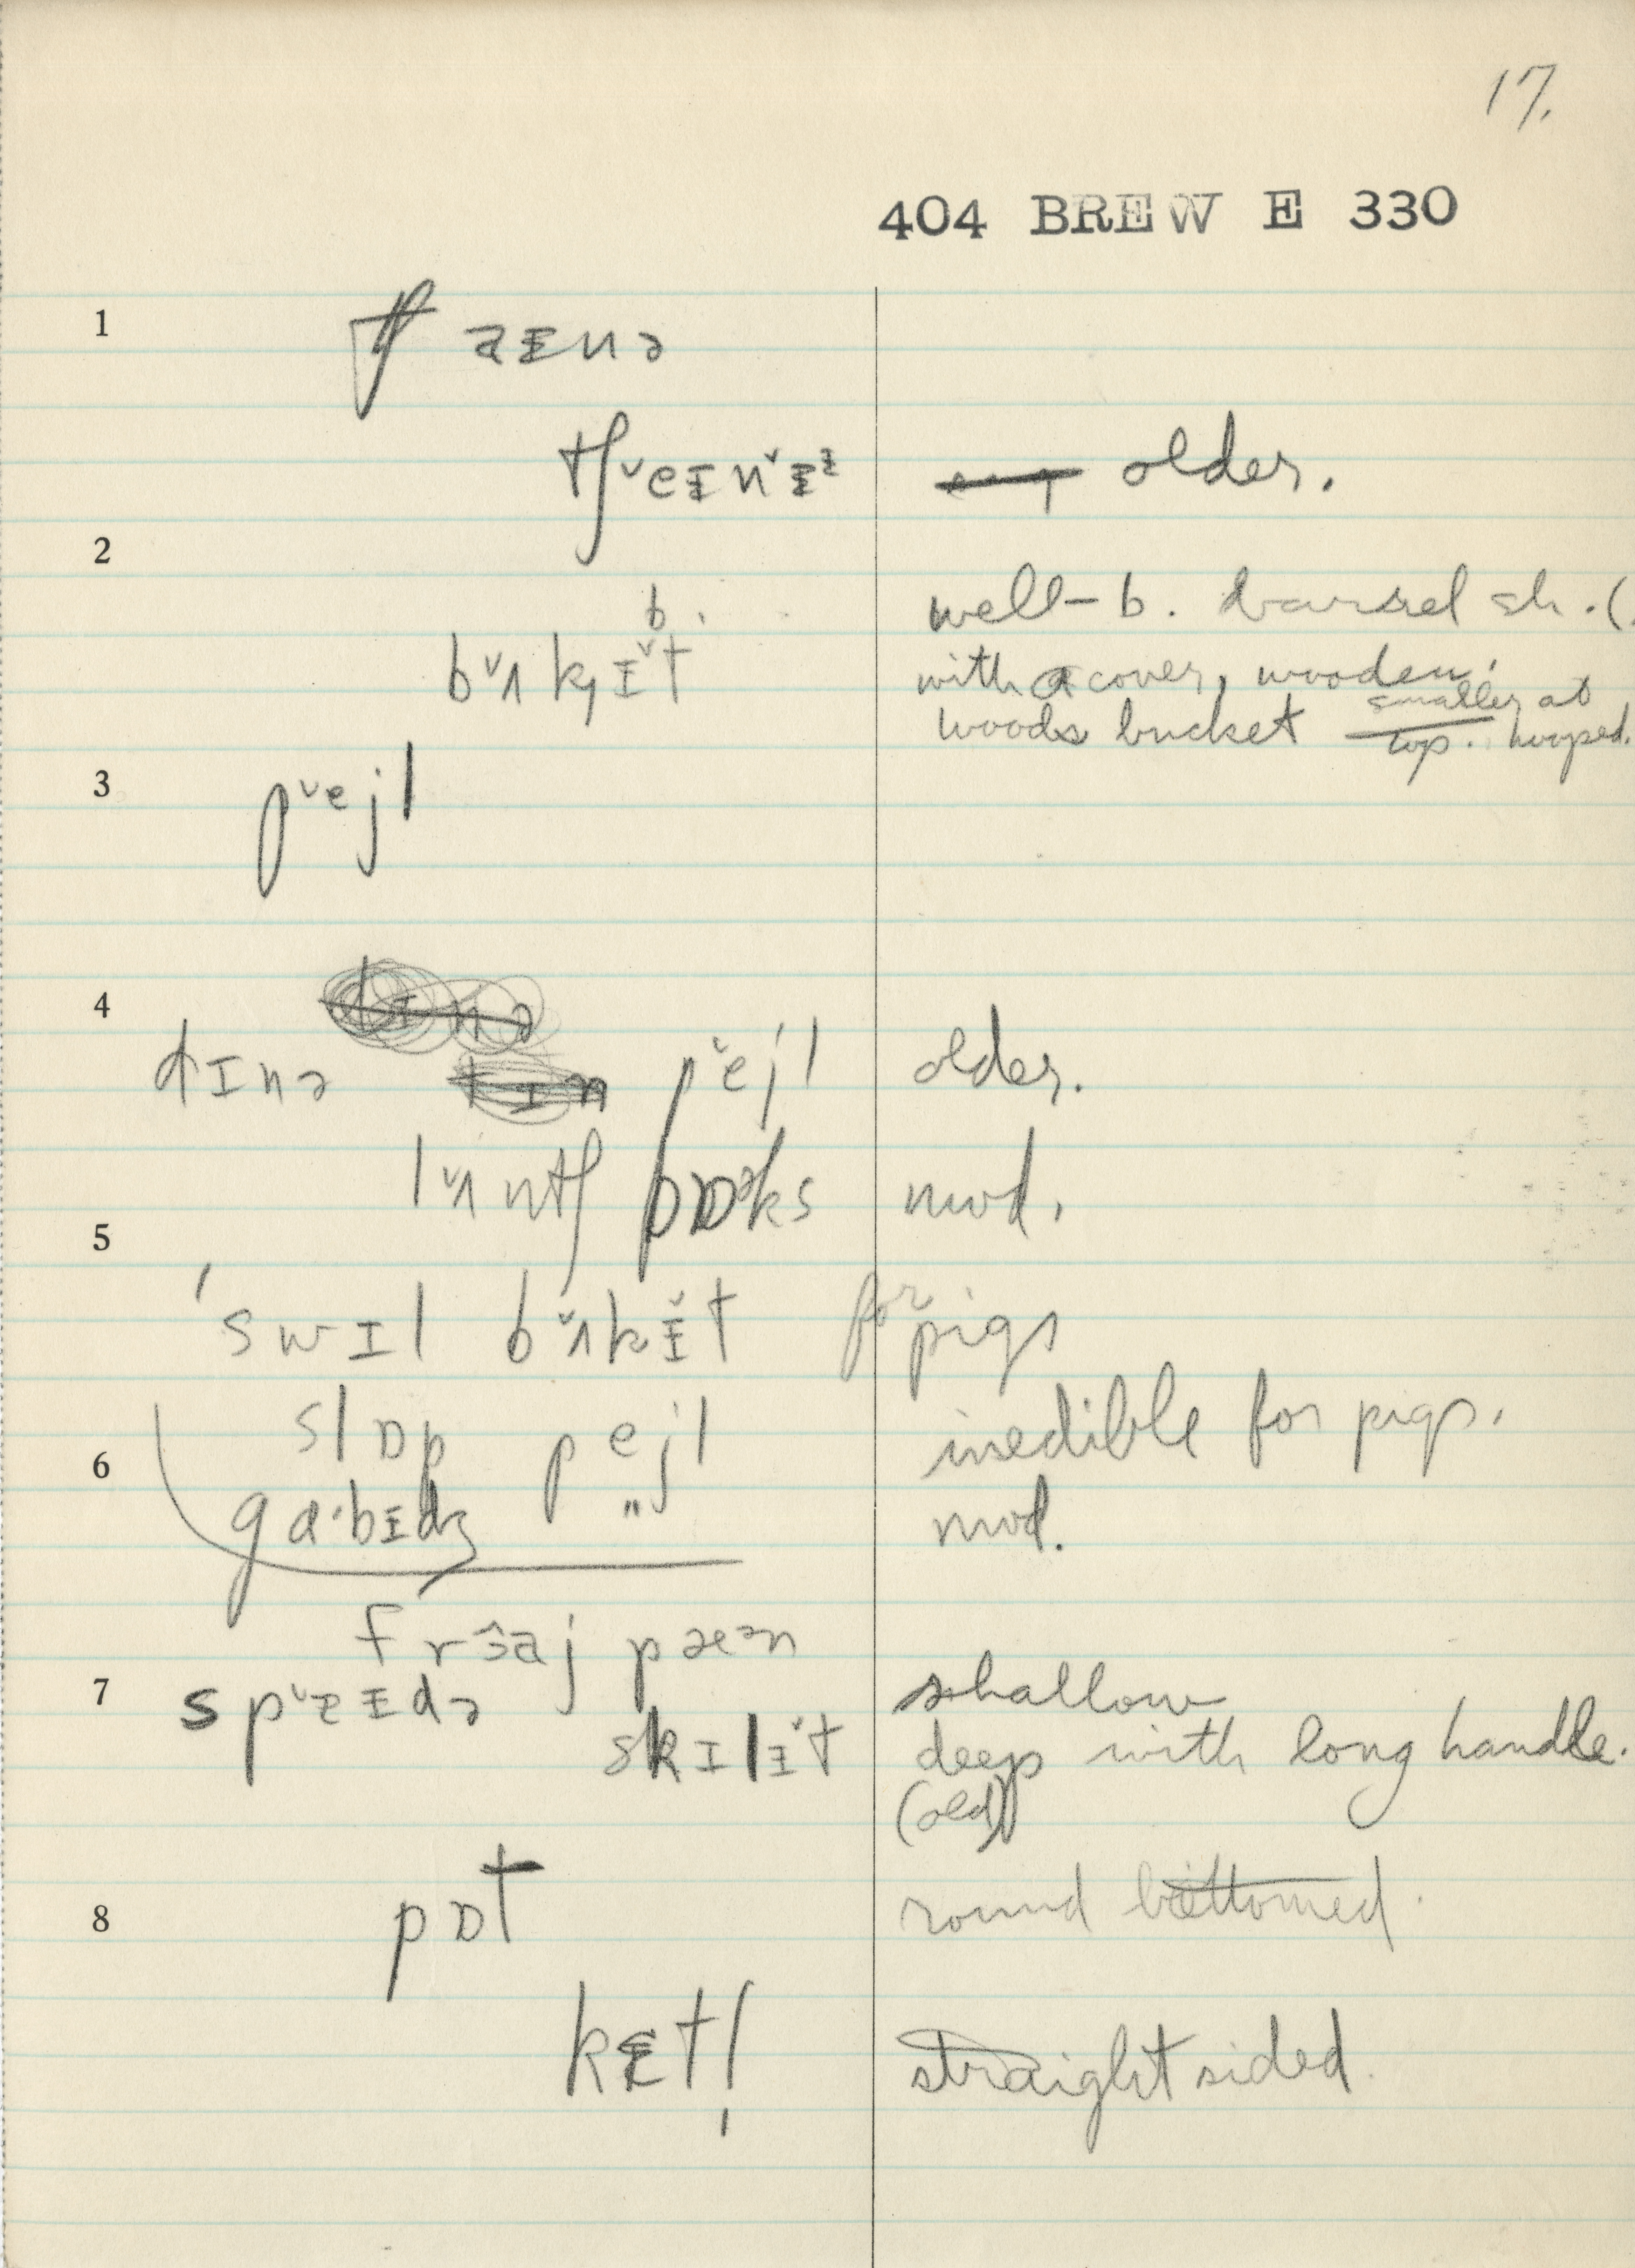 17.
404 BREW E 330
1
tʃ aᵻnə
tʃ˅eᵻn˅ᵻᶤ older.
2
b. well-b. barrel sh. (.
b˅ʌkɪ˅t with a cover, wooden.
woods bucket smaller at
top. hooped.
3 p˅ejl
4
dɪnə p˅ejl older.
l˅ʌntʃ bɒᵊks mod.
5
'swɪl b˅ʌkᵻ˅t for pigs
slɒp pejl inedible for pigs.
6
gɑ·bᵻdʒ " mod.
frɜ̂aj pæᵊn
7 sp˅ɐᵻdə shallow
skɪlᵻ˅t deep with long handle.
(old)
8 pɒt round bottomed.
kɛtl̩ straight sided.